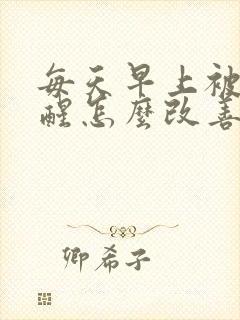 每天早上被
醒怎麼改善
卿希子